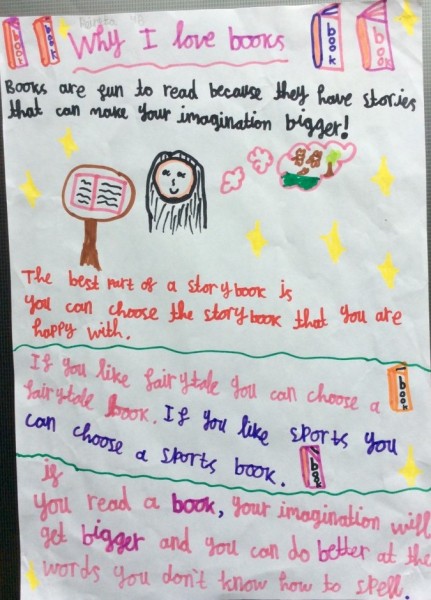 book
book
Why I love books
book
book
4A
Books are fun to read because they have stories
that can make your imagination bigger!
The best part of a story book is
you can choose the storybook that you are
happy with.
If you like fairytale you can choose a
book
fairytale book. If you like sports you
can choose a sports book.
book
if
you read a book, your imagination will
get bigger and you can do better at the
words you don't know how to spell.